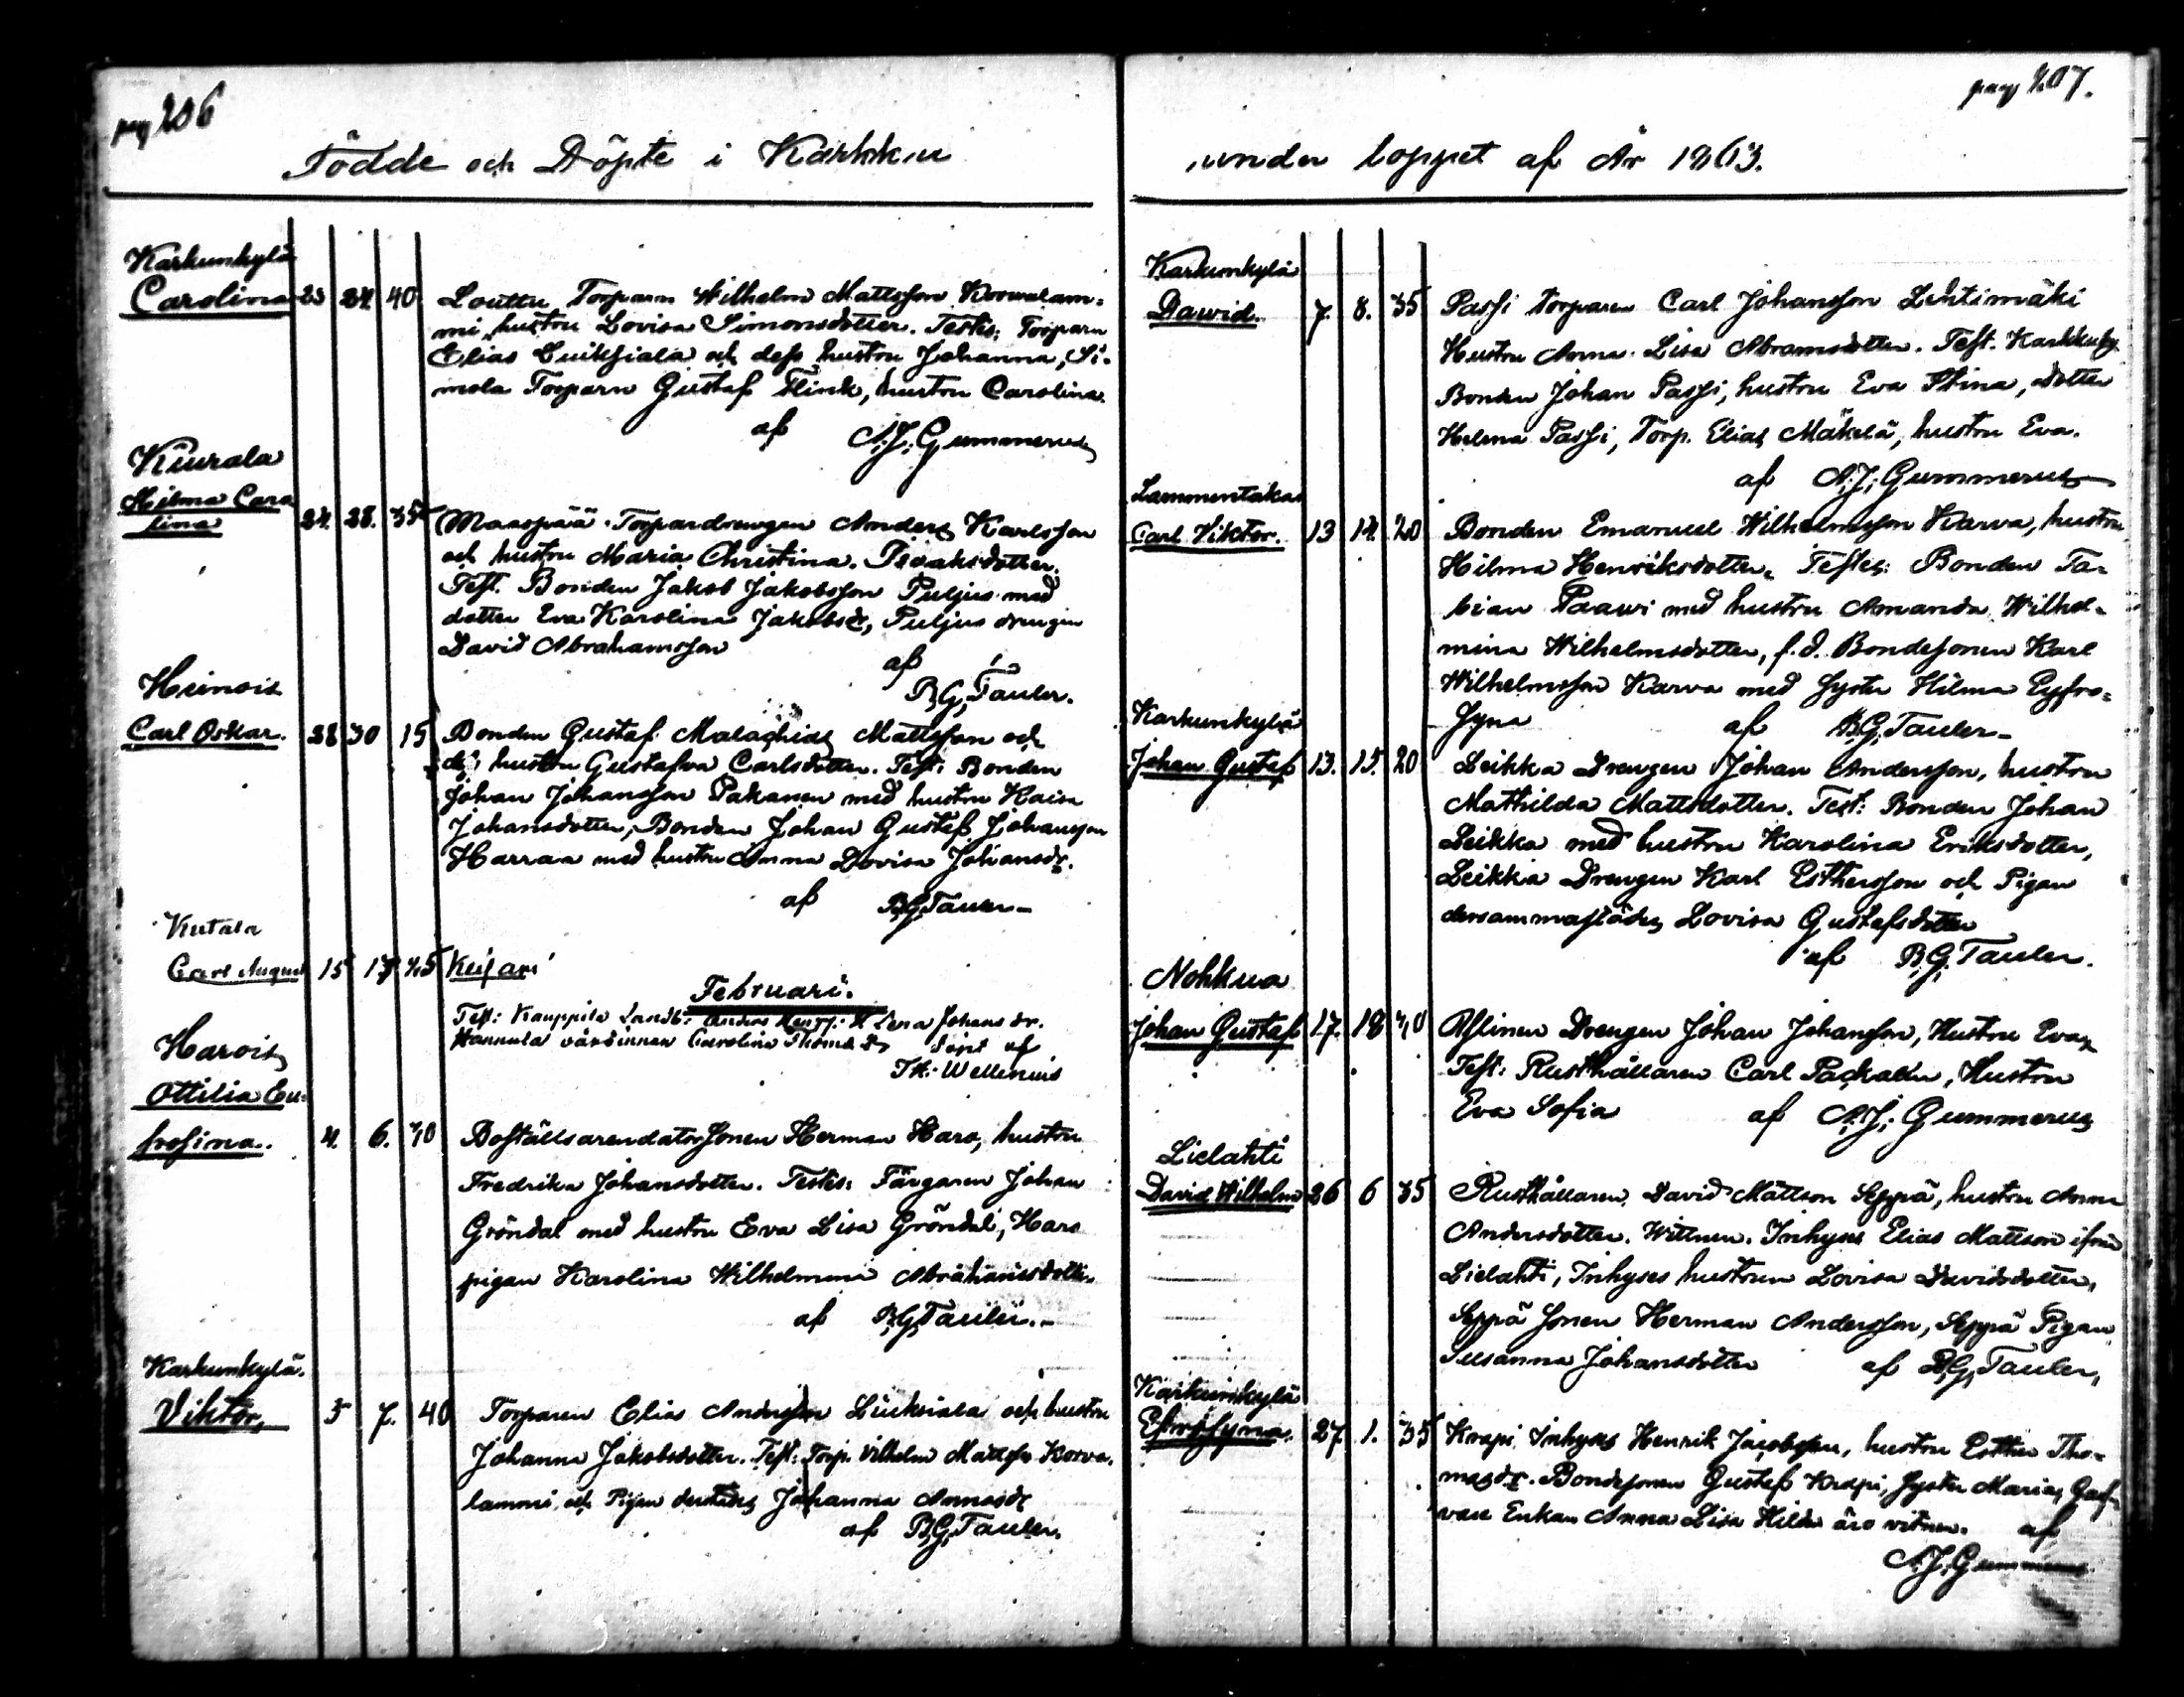 pag 206
Födde och Döpte i Karkku
Karkunkylä
Carolina 23 24. 40 Louttu Torparn Wilhelm Mattsson Korvalam-
mi, hustru Lovisa Simonsdotter. Testis: Torparn
Elias Luiksiala och dess hustru Johanna, Si-
mola Torparn Gustaf Flink, hustru Carolina.
af A.J. Gummerus
Kiurala
Hilma Caro
lina 24. 28. 35 Maaspää Torpardrengen Anders Karlsson
och hustru Maria Christina Isaaksdotter.
Test. Bonden Jakob Jakobsson Puljus med
dotter Eva Karolina Jakobsdr, Puljus drengen
David Abrahamsson
af
B.G. Tauler.
Heinois
Carl Oskar. 28 30 15 Bonden Gustaf Malachias Mattsson och
ds: hustru Gustafva Carlsdotter. Test: Bonden
Johan Johansson Pakanen med hustru Kaisa
Johansdotter, Bonden Johan Gustaf Johansson
Harraa med hustru Anna Lovisa Johansdr.
af B.G. Tauler
Kutala
Carl August 15 17 45 Keisari
Februari.
Test: Kauppila Landb: Anders H. Lena Johansdr.
Hannula värdinnan Carolina Thomasdr döpt af
Th: Wellenius
Harois
Ottilia Eu-
frosina. 4. 6. 40 Boställsarendatorsonen Herman Haro, hustru
Fredrika Johansdotter. Testis: Färgaren Johan
Gröndal med hustru Eva Lisa Gröndal, Haro
pigan Karolina Wilhelmina Abrahamsdotter
af B.G. Tauler.
Karkunkylä.
Viktor, 5 7. 40 Torparen Elias Andersson Luiksiala och hustru
Johanna Jakobsdotter. Test: Torp. Vilhelm Mattss. Korva-
lammi, och Pigan derstädes Johanna Annasdr
af B.G. Tauler.
pag 207.
under loppet af År 1863.
Karkunkylä
Dawid. 7. 8. 35 Passi torparen Carl Johansson Lehtimäki
Hustru Anna Lisa Abramsdotter. Test. Karkkuby
Bonden Johan Passi, hustru Eva Stina, dotter
Helena Passi, Torp. Elias Mäkelä, hustru Eva.
af A.J. Gummerus
Lammentaka
Carl Viktor. 13 14. 20 Bonden Emanuel Wilhelmsson Karva, hustru
Hilma Henriksdotter. Testes: Bonden Fa-
bian Paawi med hustru Amanda Wilhel-
mina Wilhelmsdotter, f.d. Bondesonen Karl
Wilhelmsson Karva med syster Hilma Eyfro-
syna af B.G. Tauler
Karkunkylä
Johan Gustaf 13. 15. 20 Leikka Drengen Johan Andersson, hustru
Mathilda Mattsdotter. Test: Bonden Johan
Leikka med hustru Karolina Eriksdotter,
Leikka Drengen Karl Esthersson och Pigan
dersammastädes Lovisa Gustafsdotter
af B.G. Tauler.
Nohkua
Johan Gustaf 17. 18 40 Aflinen Drengen Johan Johansson, Hustru Eva
Test: Rusthållaren Carl Packalén, Hustru
Eva Sofia af A.J. Gummerus
Lielahti
David Wilhelm 26 6 35 Rusthållaren David Mattson Seppä, hustru Anna
Andersdotter. Wittnen. Inhyses Elias Mattson ifrån
Lielahti, Inhyses hustrun Lovisa Davidsdotter,
Seppä sonen Herman Andersson, Seppä Pigan
Susanna Johansdotter af B.G. Tauler,
Karkunkylä
Efrosyna. 27. 1. 35 Krapi Inhyses Henrik Jacobsson, hustru Esther Tho-
masdr. Bondesonen Gustaf Krapi, syster Maria,
Enkan Anna Lisa Hilda äro vitnen. af
A.J. Gummerus